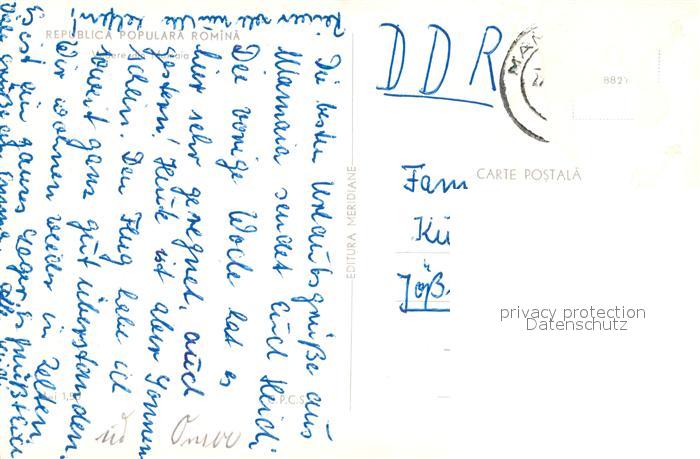 REPUBLICA POPULARĂ ROMÎNĂ
Die besten Urlaubsgrüße aus
Mamaia sendet Euch Heidi.
Die vorige Woche hat es
hier sehr geregnet, auch
gestern! Heute ist aber Sonnen
schein. Den Flug habe ich
soweit ganz gut überstanden.
Wir wohnen wieder in Zelten,
Es ist ein ganzes Lager
EDITURA MERIDIANE
C.P.C.S.
DDR
MAM
882
CARTE POȘTALĂ
Fam
Kü
Jöß
privacy protection
Datenschutz